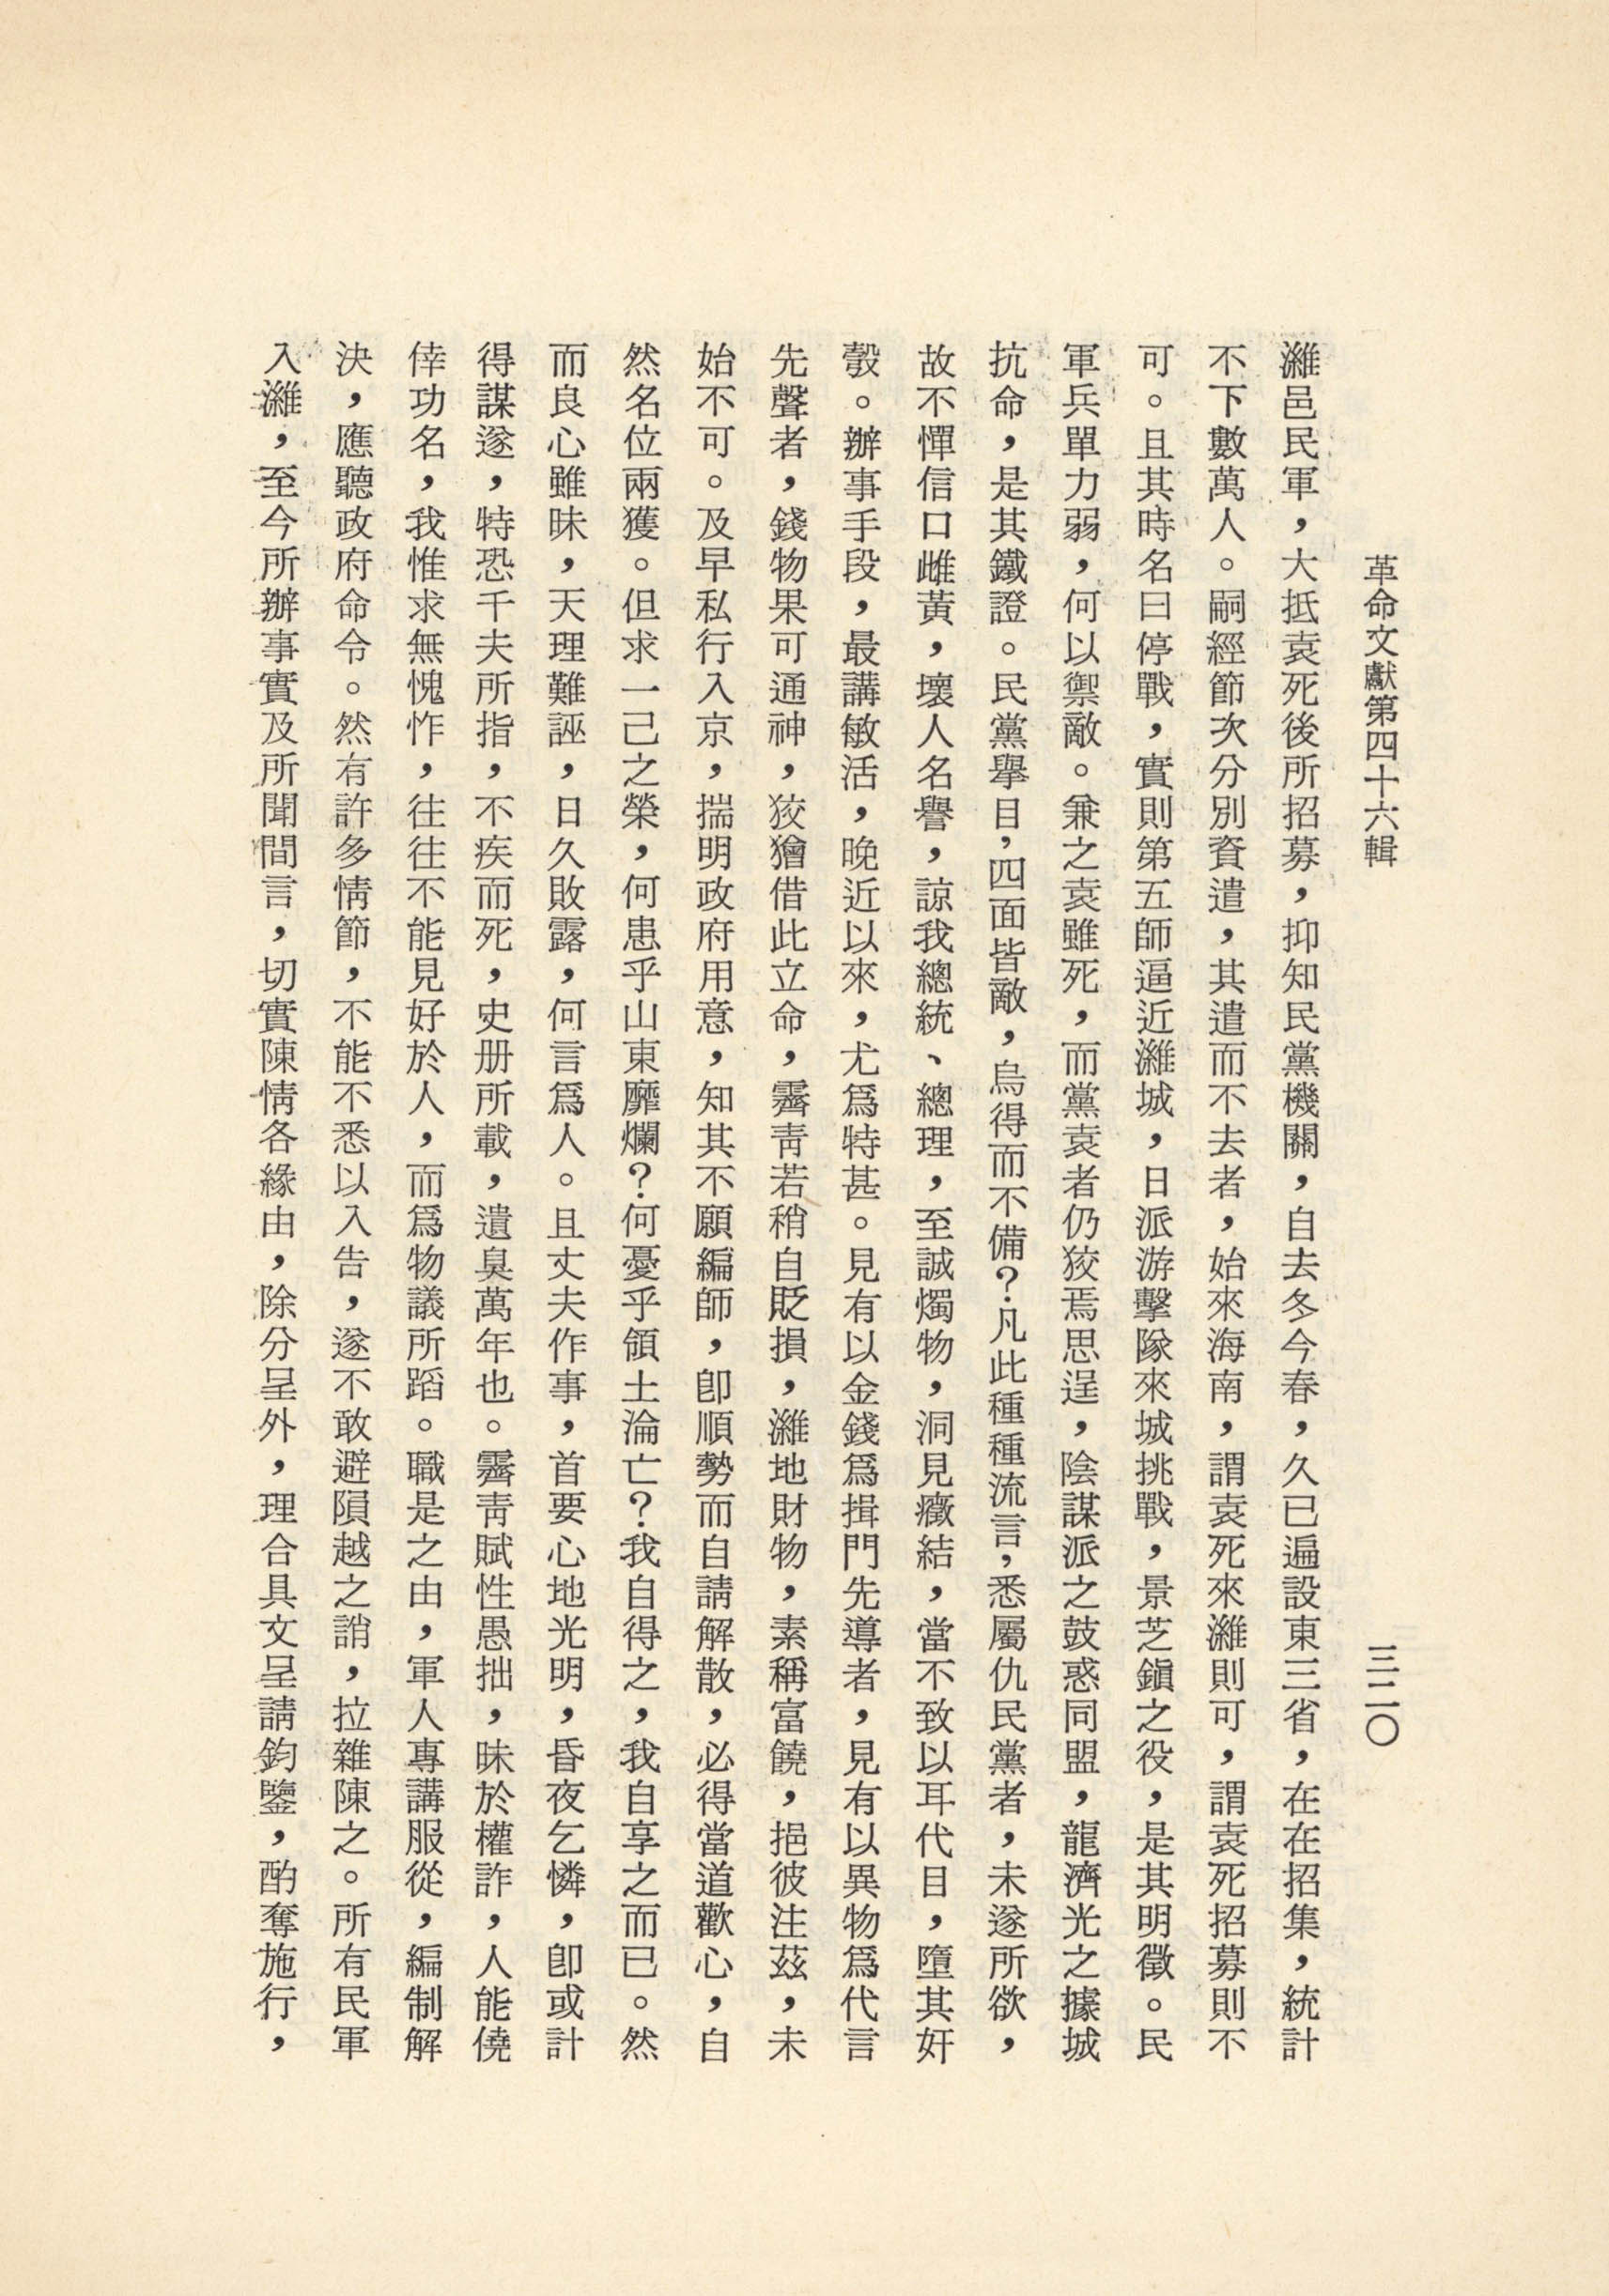 革命文獻第四十六輯
三二〇
濰邑民軍，大抵袁死後所招募，抑知民黨機關，自去冬今春，久已遍設東三省，在在招集，統計
不下數萬人。嗣經節次分別資遣，其遣而不去者，始來海南，謂袁死來濰則可，謂袁死招募則不
可。且其時名曰停戰，實則第五師逼近濰城，日派游擊隊來城挑戰，景芝鎭之役，是其明徵。民
軍兵單力弱，何以禦敵。兼之袁雖死，而黨袁者仍狡焉思逞，陰謀派之鼓惑同盟，龍濟光之據城
抗命，是其鐵證。民黨擧目，四面皆敵，烏得而不備？凡此種種流言，悉屬仇民黨者，未遂所欲，
故不憚信口雌黃，壞人名譽，諒我總統、總理，至誠燭物，洞見癥結，當不致以耳代目，墮其奸
彀。辦事手段，最講敏活，晚近以來，尤爲特甚。見有以金錢爲揖門先導者，見有以異物爲代言
先聲者，錢物果可通神，狡獪借此立命，霽靑若稍自貶損，濰地財物，素稱富饒，挹彼注茲，未
始不可。及早私行入京，揣明政府用意，知其不願編師，卽順勢而自請解散，必得當道歡心，自
然名位兩獲。但求一己之榮，何患乎山東靡爛？何憂乎領土淪亡？我自得之，我自享之而已。然
而良心雖昧，天理難誣，日久敗露，何言爲人。且丈夫作事，首要心地光明，昏夜乞憐，卽或計
得謀遂，特恐千夫所指，不疾而死，史册所載，遺臭萬年也。霽靑賦性愚拙，昧於權詐，人能僥
倖功名，我惟求無愧怍，往往不能見好於人，而爲物議所蹈。職是之由，軍人專講服從，編制解
決，應聽政府命令。然有許多情節，不能不悉以入告，遂不敢避隕越之誚，拉雜陳之。所有民軍
入濰，至今所辦事實及所聞間言，切實陳情各緣由，除分呈外，理合具文呈請鈞鑒，酌奪施行，